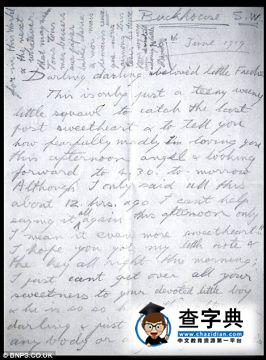 Buckhouse S.W.
June 1919
Darling darling beloved little Freddie
This is only just a teeny weeny
little squawk to catch the last
post sweetheart & to tell you
how fearfully madly I'm loving you
this afternoon angel & looking
forward to 4.30. to-morrow
Although I only said all this
about 12. hrs. ago I can't help
saying it all again this afternoon only
I mean it even more sweetheart!!
I hope you got my little note &
the key all right this morning;
I just can't get over all your
sweetness to your devoted little boy
& he is so so
darling & just
any body or a
查字典
www.chazidian.com
中文教育资源第一平台
© BNPS.CO.UK